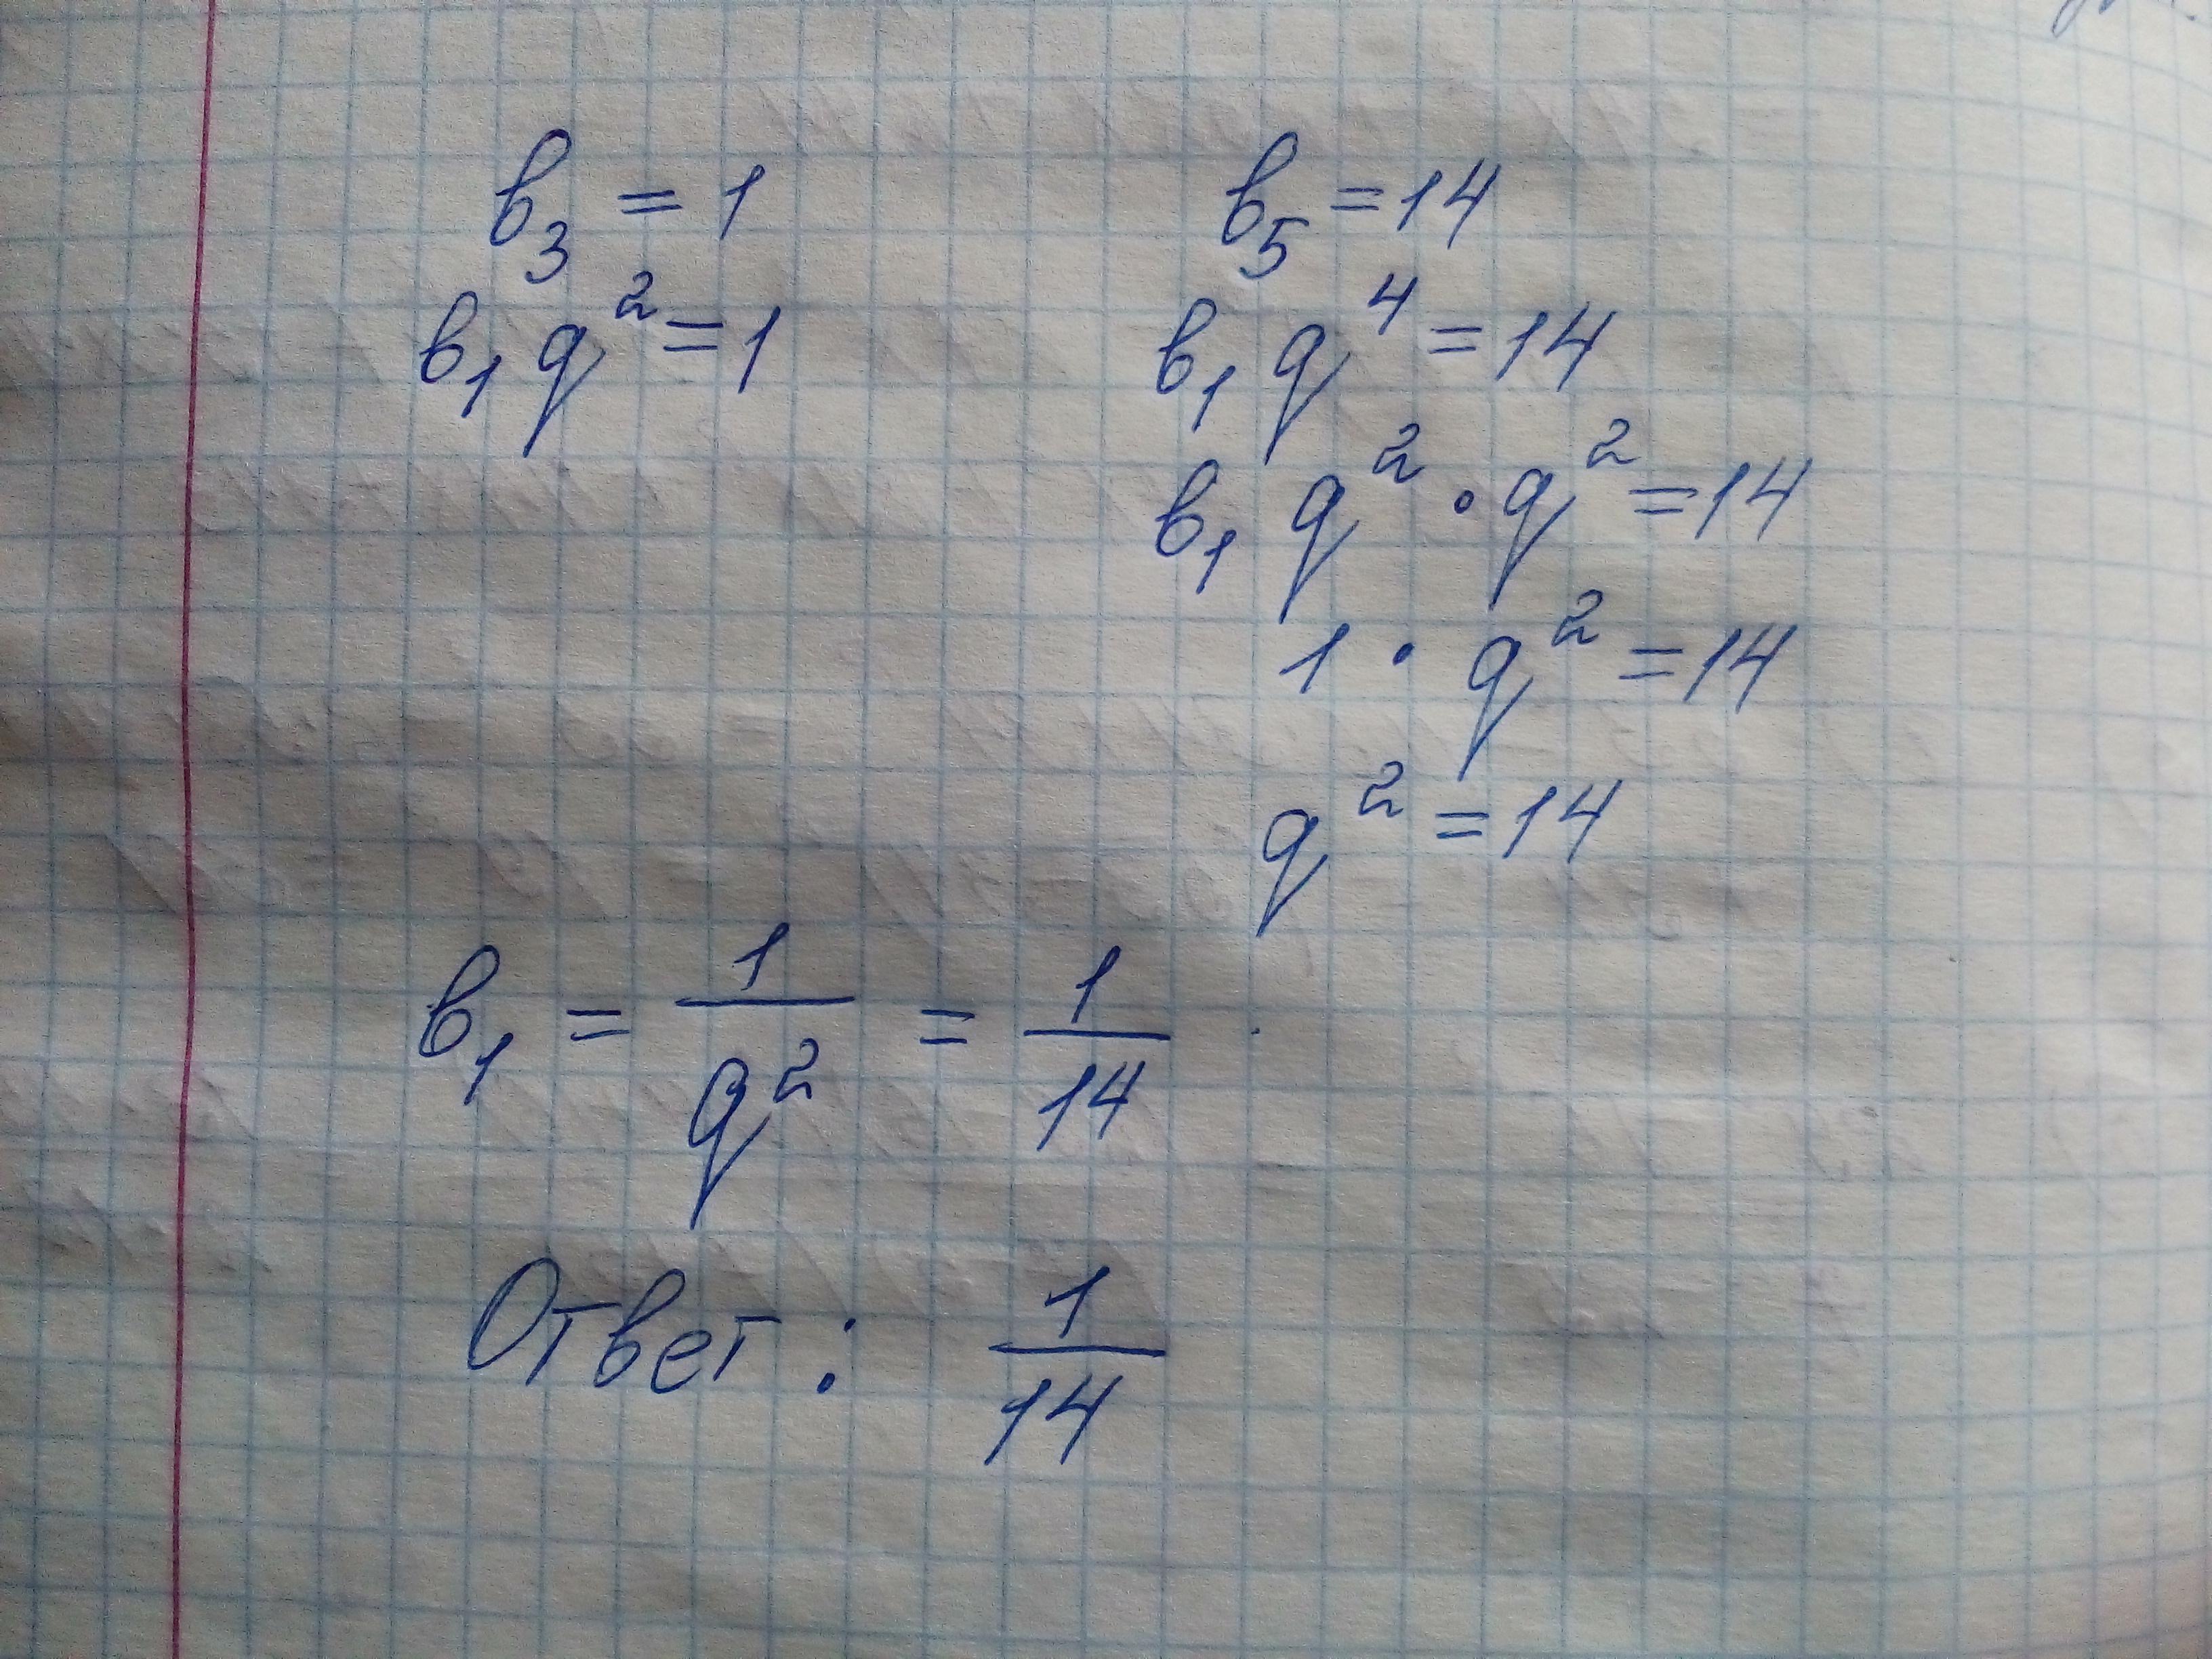 в₃ = 1
в₁ q² = 1
в₅ = 14
в₁ q⁴ = 14
в₁ q² · q² = 14
1 · q² = 14
q² = 14
в₁ = 1/q² = 1/14
Ответ: 1/14